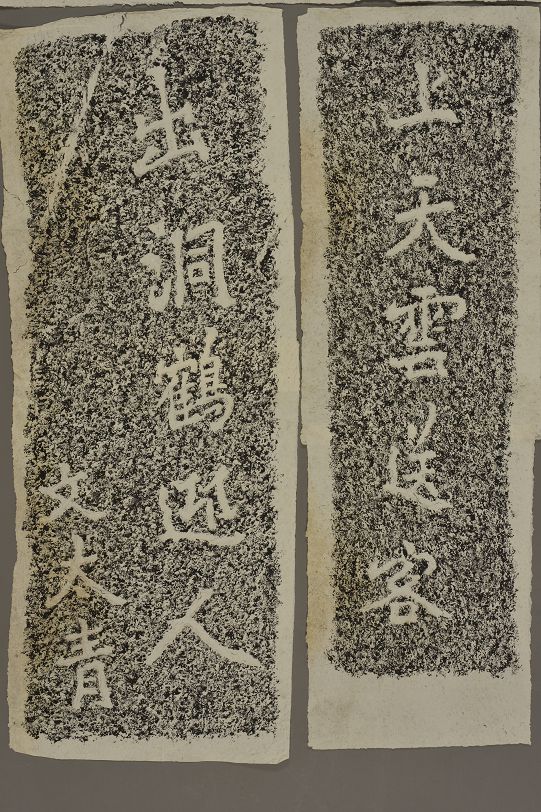 上天雲送客
出洞鶴迎人
文大青